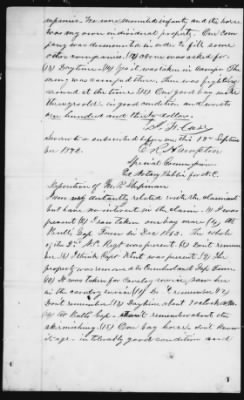 infantry. We were mounted infantry and the horse
was my own individual property. Our com-
pany was dismounted in order to fill some
other companies. (12) None was asked for.
(13) Daytime. (14) Yes it was taken in camp. The
army was camped there. There was fighting
around at the time. (15) One good bay mare
three years old in good condition and worth
one hundred and thirty dollars.
Sworn to & subscribed before me this 13th Septem-
ber 1872.
E. R. Hampton
Special Commissioner
& Notary Public for N.C.
Deposition of Wm R. Shipman
I am not distantly related with the claimant
but have no interest in the claim. (1) I was
present. (2) I saw taken one bay mare. (3) At
Bull's Gap Tenn in Dec 1863. The whole
of the 2d N.C. Regt was present. (4) Don't remem-
ber. (5) I think Capt. Kent was present. (6) The
property was removed to Cumberland Gap Tenn.
(7) It was taken for cavalry service, saw her
in the cavalry service. (8) Do
Don't remember. (13) Daytime about 3 o'clock
(14) At Bull's Gap. Don't remember about the
skirmishing. (15) One bay horse don't know
its age - in tolerably good condition and